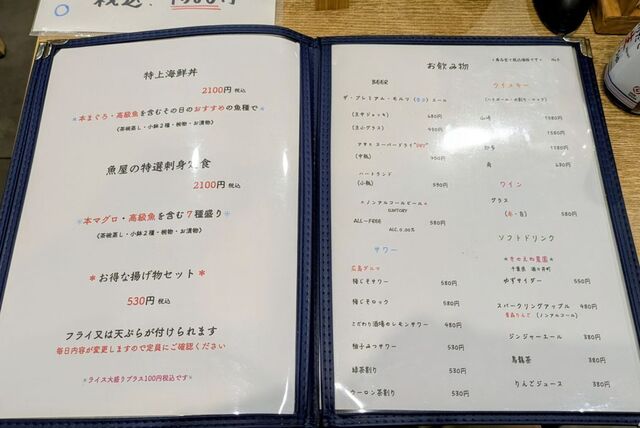 特上海鮮丼
2100円 税込
*本まぐろ・高級魚を含むその日のおすすめの魚種で*
(茶碗蒸し・小鉢2種・椀物・お漬物)
魚屋の特選刺身定食
2100円 税込
*本マグロ・高級魚を含む7種盛り*
(茶碗蒸し・小鉢2種・椀物・お漬物)
*お得な揚げ物セット*
530円 税込
フライ又は天ぷらが付けられます
毎日内容が変更しますので定員にご確認ください
*ライス大盛りプラス100円税込です*
お飲み物
BEER
ザ・プレミアム・モルツ
エール
(生中ジョッキ) 680円
(生小グラス) 490円
アサヒ スーパードライ"DRY"
(中瓶)
ハートランド
(小瓶) 590円
*ノンアルコールビール*
SUNTORY
ALL-FREE 580円
ALC.0.00%
サワー
広島グルマ
梅じそサワー 580円
梅じそロック 580円
こだわり酒場のレモンサワー 480円
柚子みつサワー 530円
緑茶割り 530円
ウーロン茶割り 530円
ウイスキー
(ハイボール・水割り・ロック)
山崎 1580円
知多 1580円
角 630円
ワイン
グラス
(赤・白) 580円
ソフトドリンク
千葉県
ゆずサイダー 550円
スパークリングアップル 480円
青森りんご (ノンアルコール)
ジンジャーエール 380円
烏龍茶 380円
りんごジュース 380円